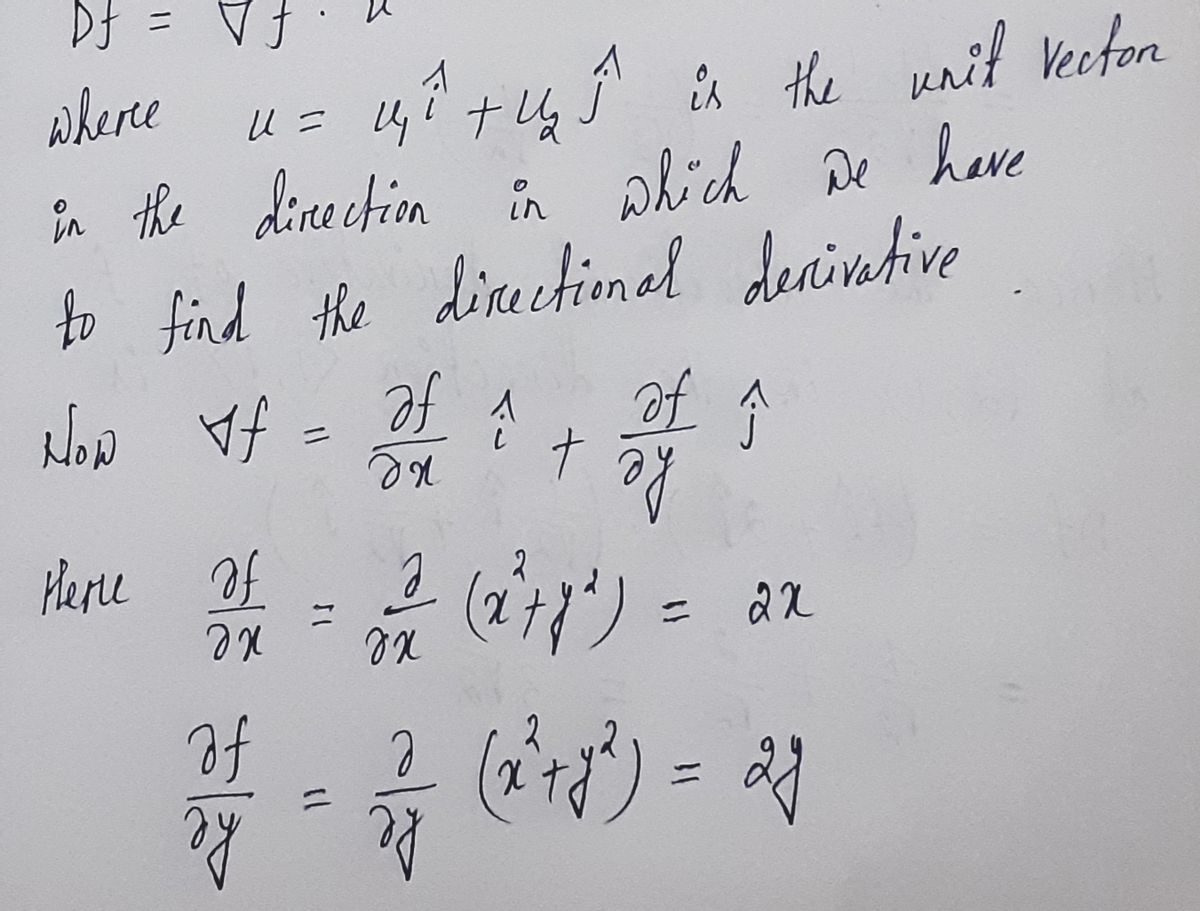 Df = ∇f . u
where u = u₁ î + u₂ ĵ is the unit vector
in the direction in which we have
to find the directional derivative .
Now ∇f = ∂f/∂x î + ∂f/∂y ĵ
Here ∂f/∂x = ∂/∂x (x²+y²) = 2x
∂f/∂y = ∂/∂y (x²+y²) = 2y